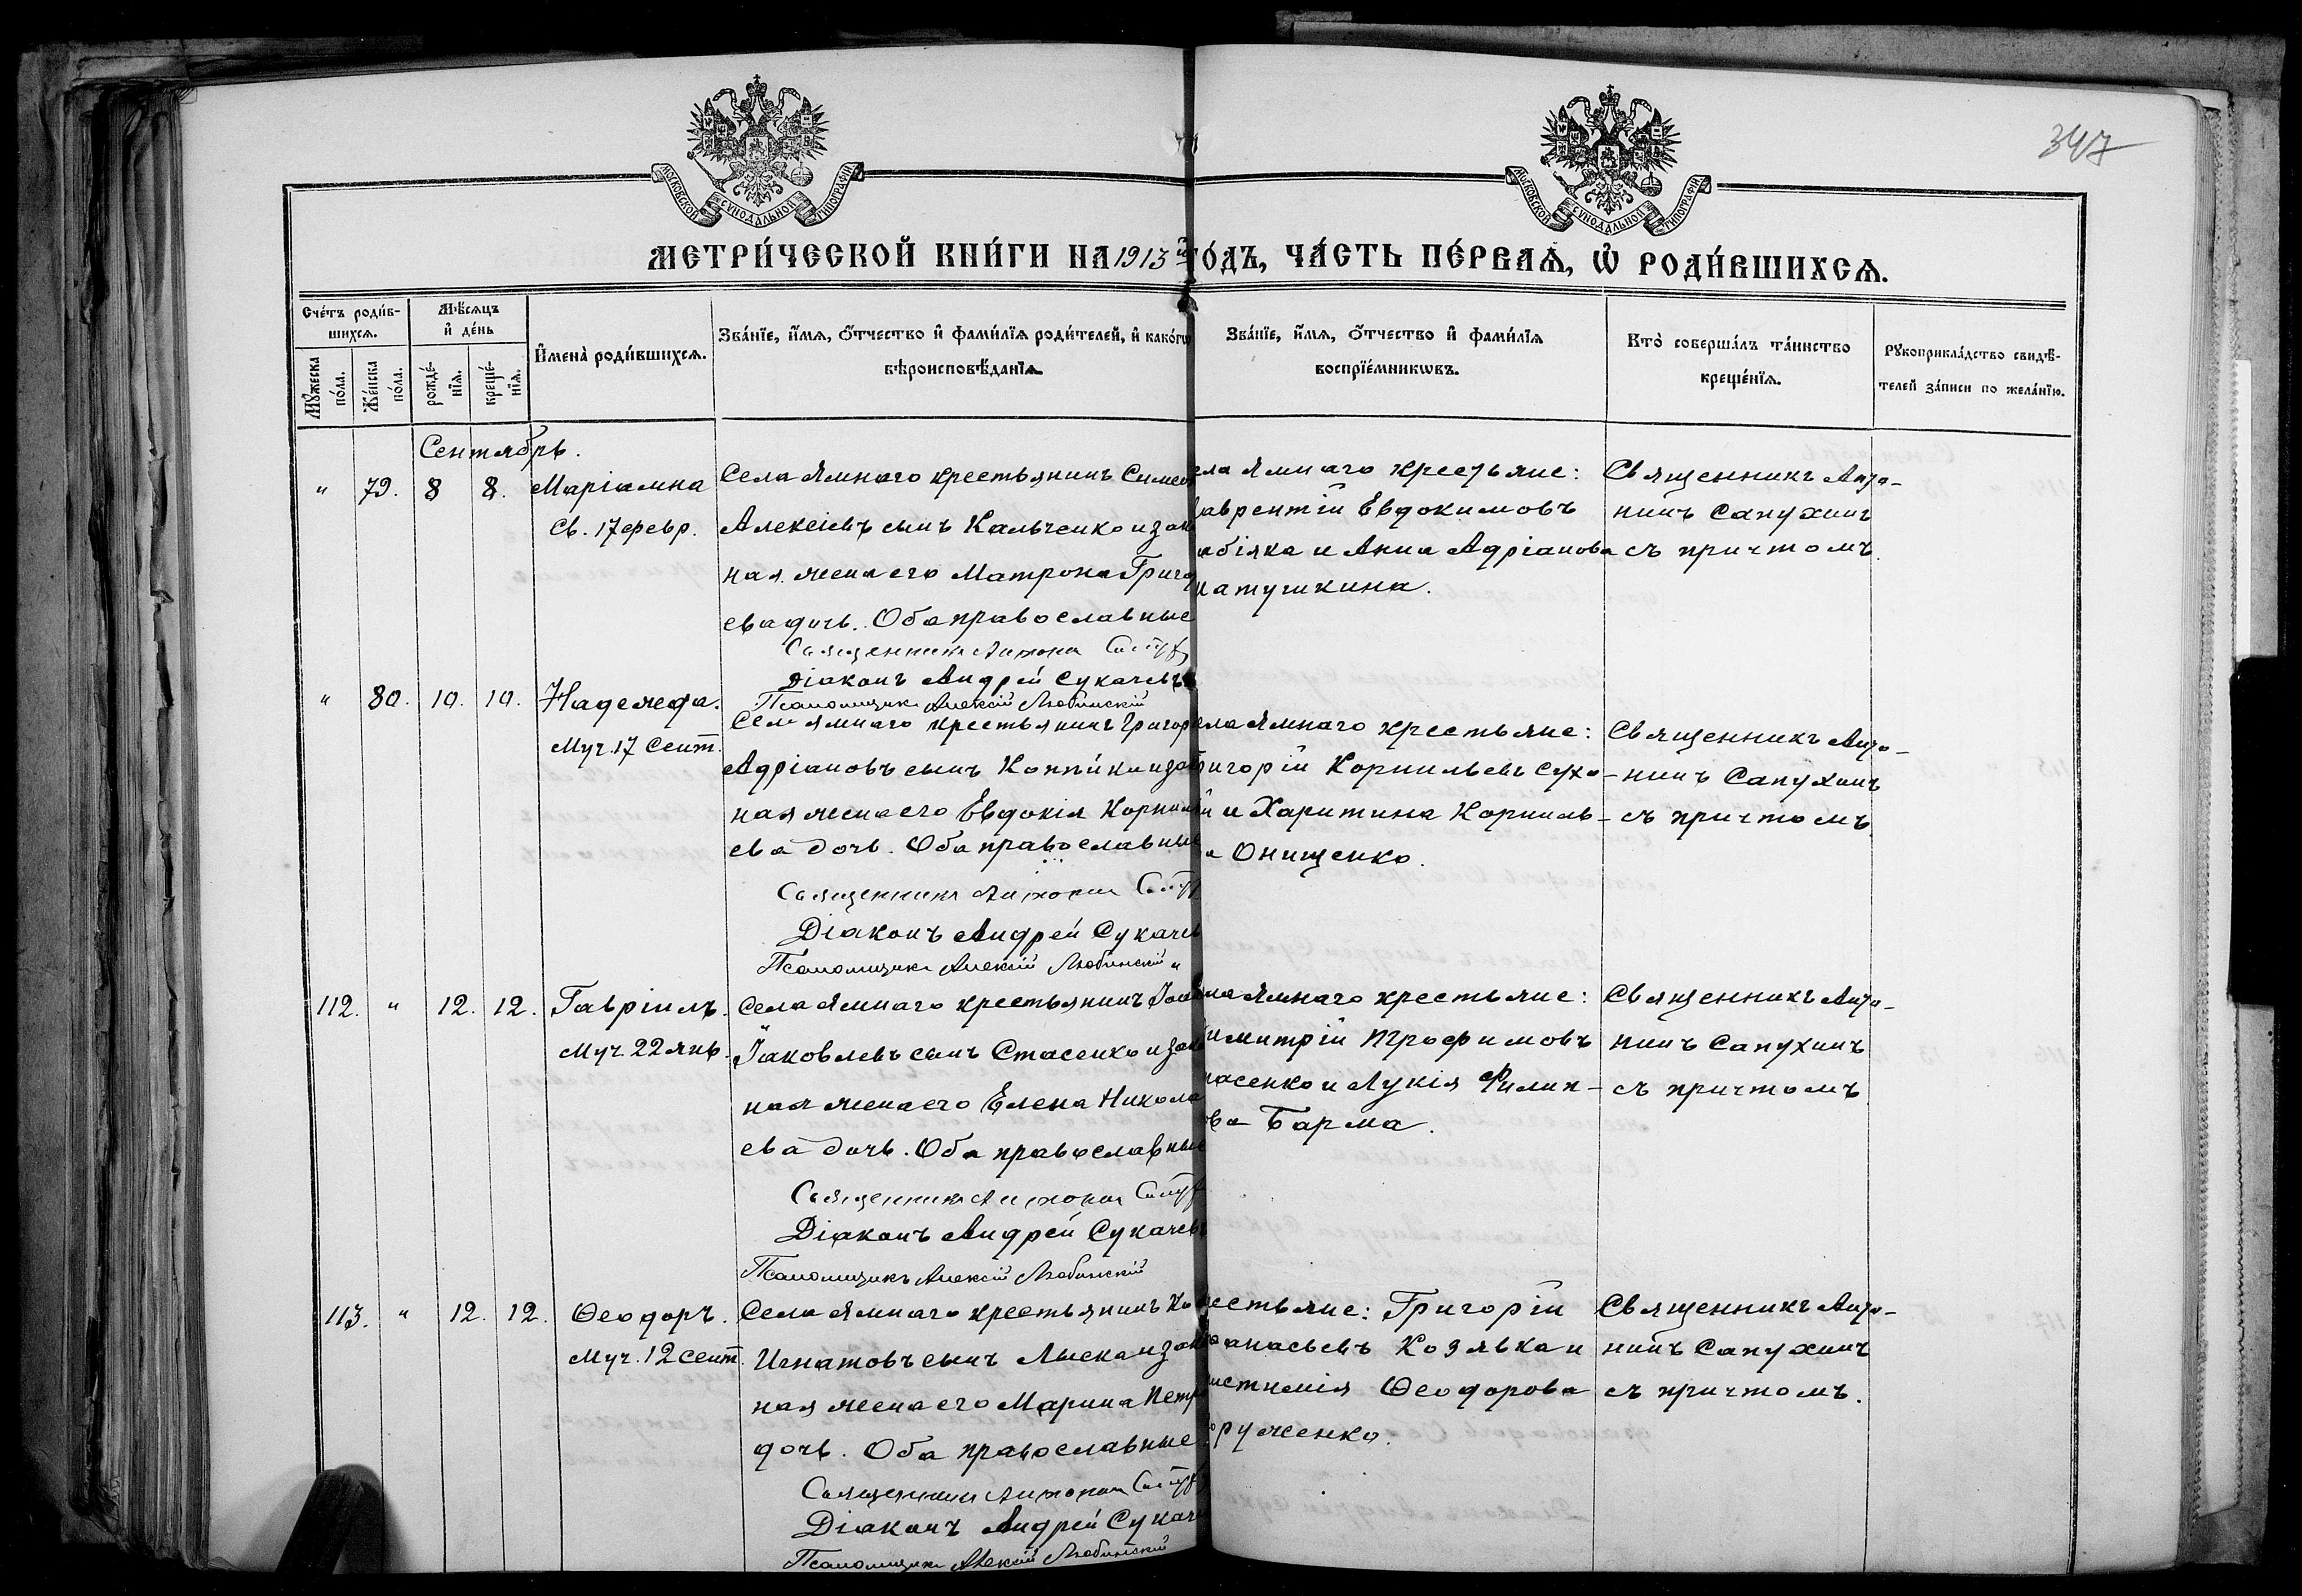 347
МОСКОВСКОЙ СУНОДАЛЬНОЙ ТИПОГРАФІИ
МОСКОВСКОЙ СУНОДАЛЬНОЙ ТИПОГРАФІИ
МЕТРИ́ЧЕСКОЙ КНИ́ГИ НА 1913й ГО́ДЪ, ЧА́СТЬ ПЕ́РВАѦ, Ѽ РОДИ́ВШИХСѦ.
Сче́тъ роди́в-
шихсѧ.
Мѣ́сѧцъ
и҆ де́нь
Му́жеска
по́ла.
Же́нска
по́ла.
рожде́-
нїѧ.
креще́-
нїѧ.
И҆мена̀ роди́вшихсѧ.
Зва́нїе, и҆́мѧ, ѻ҆́тчество и҆ фами́лїѧ роди́телей, и҆ како́гѡ
вѣроисповѣ́данїѧ.
Зва́нїе, и҆́мѧ, ѻ҆́тчество и҆ фами́лїѧ
воспрїе́мникѡвъ.
Кто̀ соверша́лъ та́инство
креще́нїѧ.
Рꙋкоприкла́дство свидѣ́-
телей за́писи по жела́нїю.
Сентябрь.
" 79. 8 8. Маріамна
Св. 17 февр.
Села Ямнаго крестьянинъ Симео
Алексіевъ сынъ Кальченко и зак
ная жена его Матрона Григо
ева дочь. Оба православные
Священникъ Антонин
Діаконъ Андрей Сукачевъ
Псаломщикъ Алексій Любинскій
ела Ямнаго крестьяне:
аврентій Евдокимовъ
абіяка и Анна Адріанова
атушкина.
Священникъ Анто-
нинъ Сапухинъ
съ причтомъ.
" 80. 10. 10. Надежда.
Муч. 17 Сент.
Села Ямнаго крестьянинъ Григор
Адріановъ сынъ и зак
ная жена его Евдокія Корнил
ева дочь. Оба православные
Священникъ Антонин
Діаконъ Андрей Сукачев
Псаломщикъ Алексій Любинскій
ела Ямнаго крестьяне:
ригорій Корнильевъ Сухо-
й и Харитина Корниль-
а Онищенко.
Священникъ Анто-
нинъ Сапухинъ
съ причтомъ
112. " 12. 12. Гавріилъ.
Муч. 22 янв.
Села Ямнаго крестьянинъ
Іаковлевъ сынъ Стасенко и зак
ная жена его Елена Никола
ева дочь. Оба православные
Священникъ Антонин
Діаконъ Андрей Сукачевъ
Псаломщикъ Алексій Любинскій
ла Ямнаго крестьяне:
имитрій Трофимовъ
тасенко и Лукія Филип-
ова Барма.
Священникъ Анто-
нинъ Сапухинъ
съ причтомъ
113. " 12. 12. Ѳеодоръ.
Муч. 12 сент.
Села Ямнаго крестьянинъ
Игнатовъ сынъ Лыска и зак
ная жена его Марина Петро
дочь. Оба православные
Священникъ Антонин
Діаконъ Андрей Сукаче
Псаломщикъ Алексій Любинскій
рестьяне: Григорій
анасьевъ Козявка и
стинія Ѳеодорова
оруженко.
Священникъ Анто-
нинъ Сапухинъ
съ причтомъ.